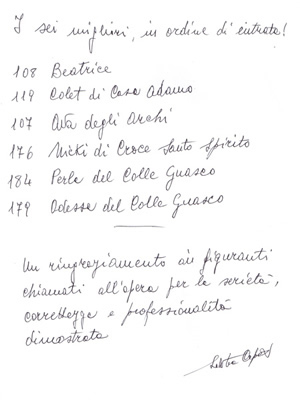 I sei migliori, in ordine di entrata!
108 Beatrice
119 Colet di Casa Adamo
107 Ava degli Archi
176 Nicki di Croce Santo Spirito
184 Perla del Colle Guasco
179 Odessa del Colle Guasco
Un ringraziamento ai figuranti
chiamati all'opera per la serietà,
correttezza e professionalità
dimostrata